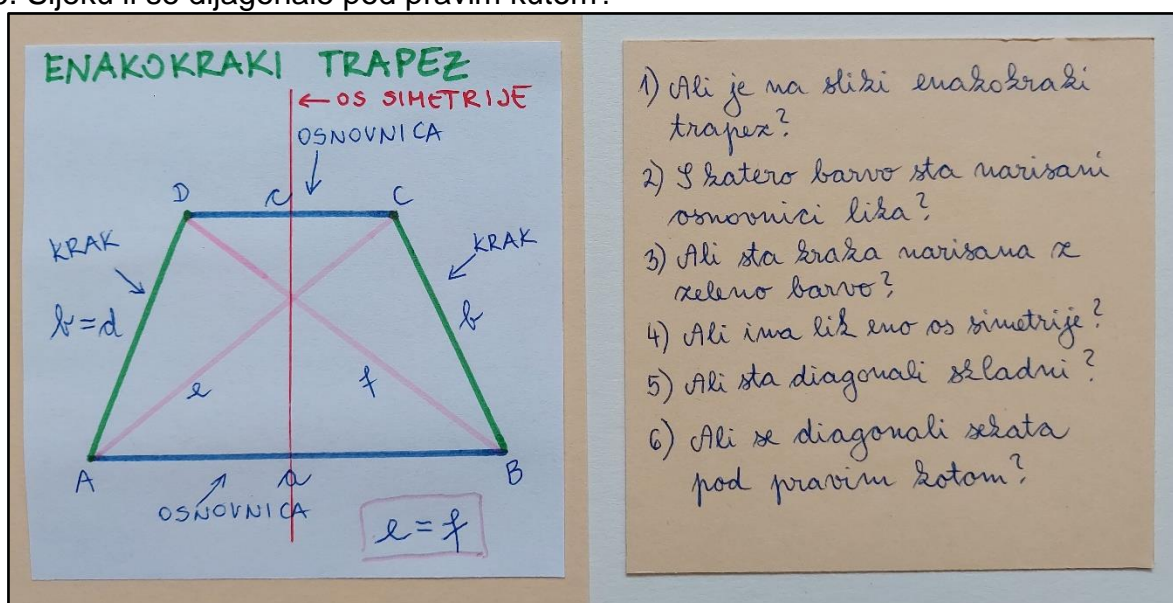 ENAKOKRAKI TRAPEZ
← OS SIMETRIJE
OSNOVNICA
D
c
C
KRAK
KRAK
b=d
b
e
f
A
a
B
OSNOVNICA
e=f
1) Ali je na sliki enakokraki
trapez?
2) S katero barvo sta narisani
osnovnici lika?
3) Ali sta kraka narisana z
zeleno barvo?
4) Ali ima lik eno os simetrije?
5) Ali sta diagonali skladni?
6) Ali se diagonali sekata
pod pravim kotom?